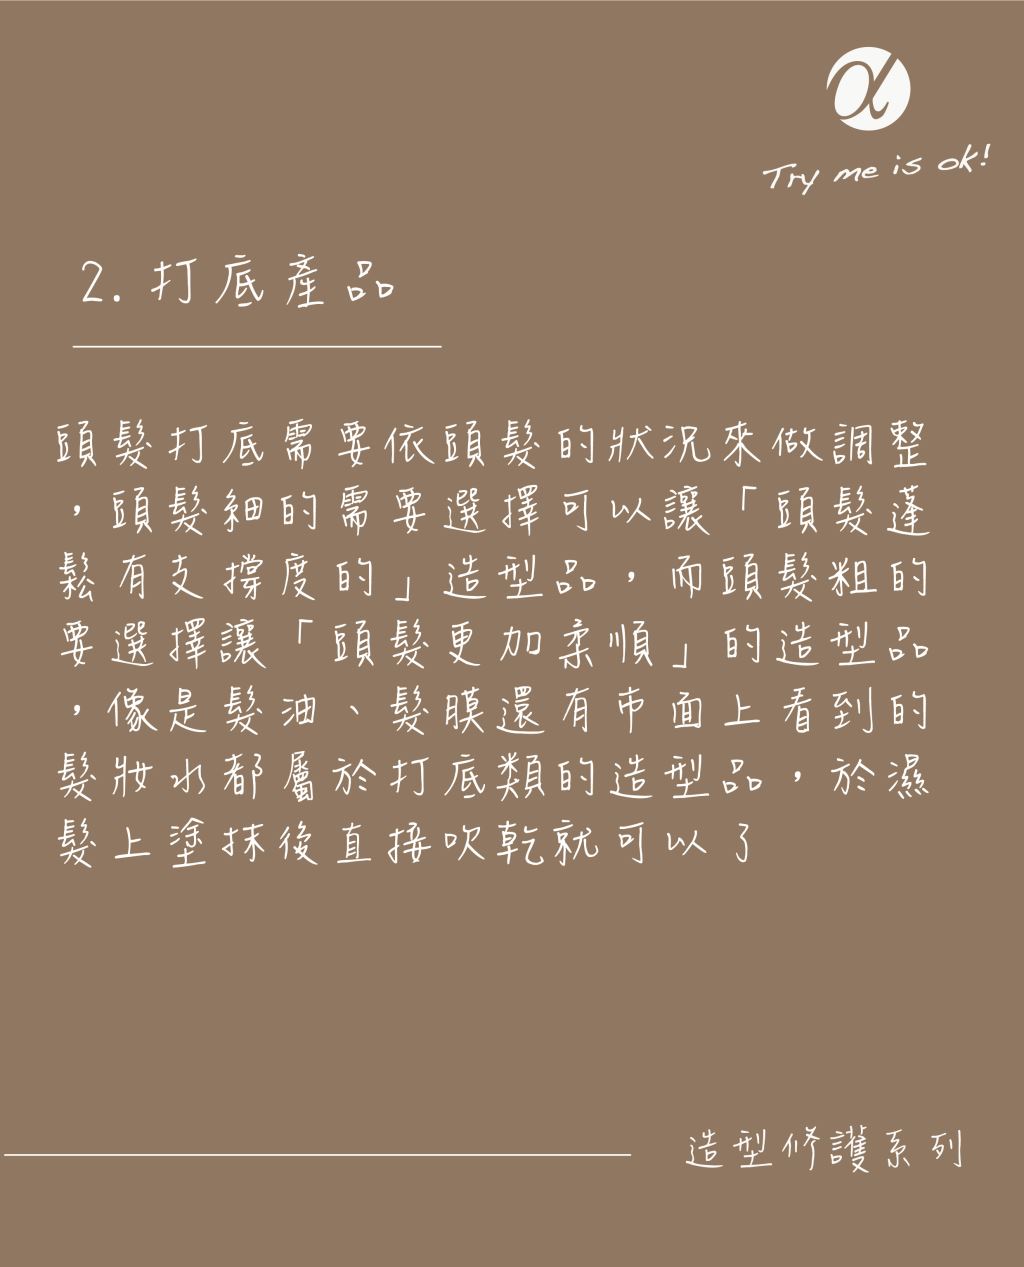 α
Try me is ok!
2. 打底產品
頭髮打底需要依頭髮的狀況來做調整
，頭髮細的需要選擇可以讓「頭髮蓬
鬆有支撐度的」造型品，而頭髮粗的
要選擇讓「頭髮更加柔順」的造型品
，像是髮油、髮膜還有市面上看到的
髮妝水都屬於打底類的造型品，於濕
髮上塗抹後直接吹乾就可以了
造型修護系列